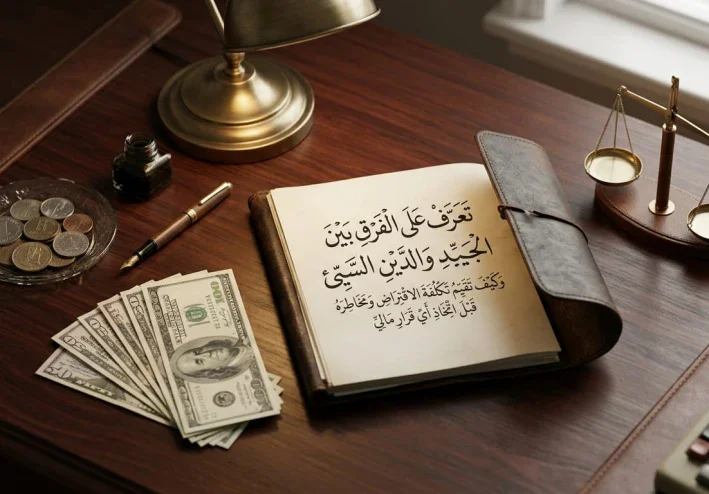 تَعَرَّفْ عَلَى الْفَرْقِ بَيْنَ
الْجَيِّدِ وَالدَّيْنِ السَّيِّئ
وَكَيْفَ تُقَيِّم تَكْلُفَةَ الِاقْتِرَاضِ وَمَخَاطِرَهُ
قَبْلَ اتِّخَاذِ أَيِّ قَرَارٍ مَالِيٍّ
100